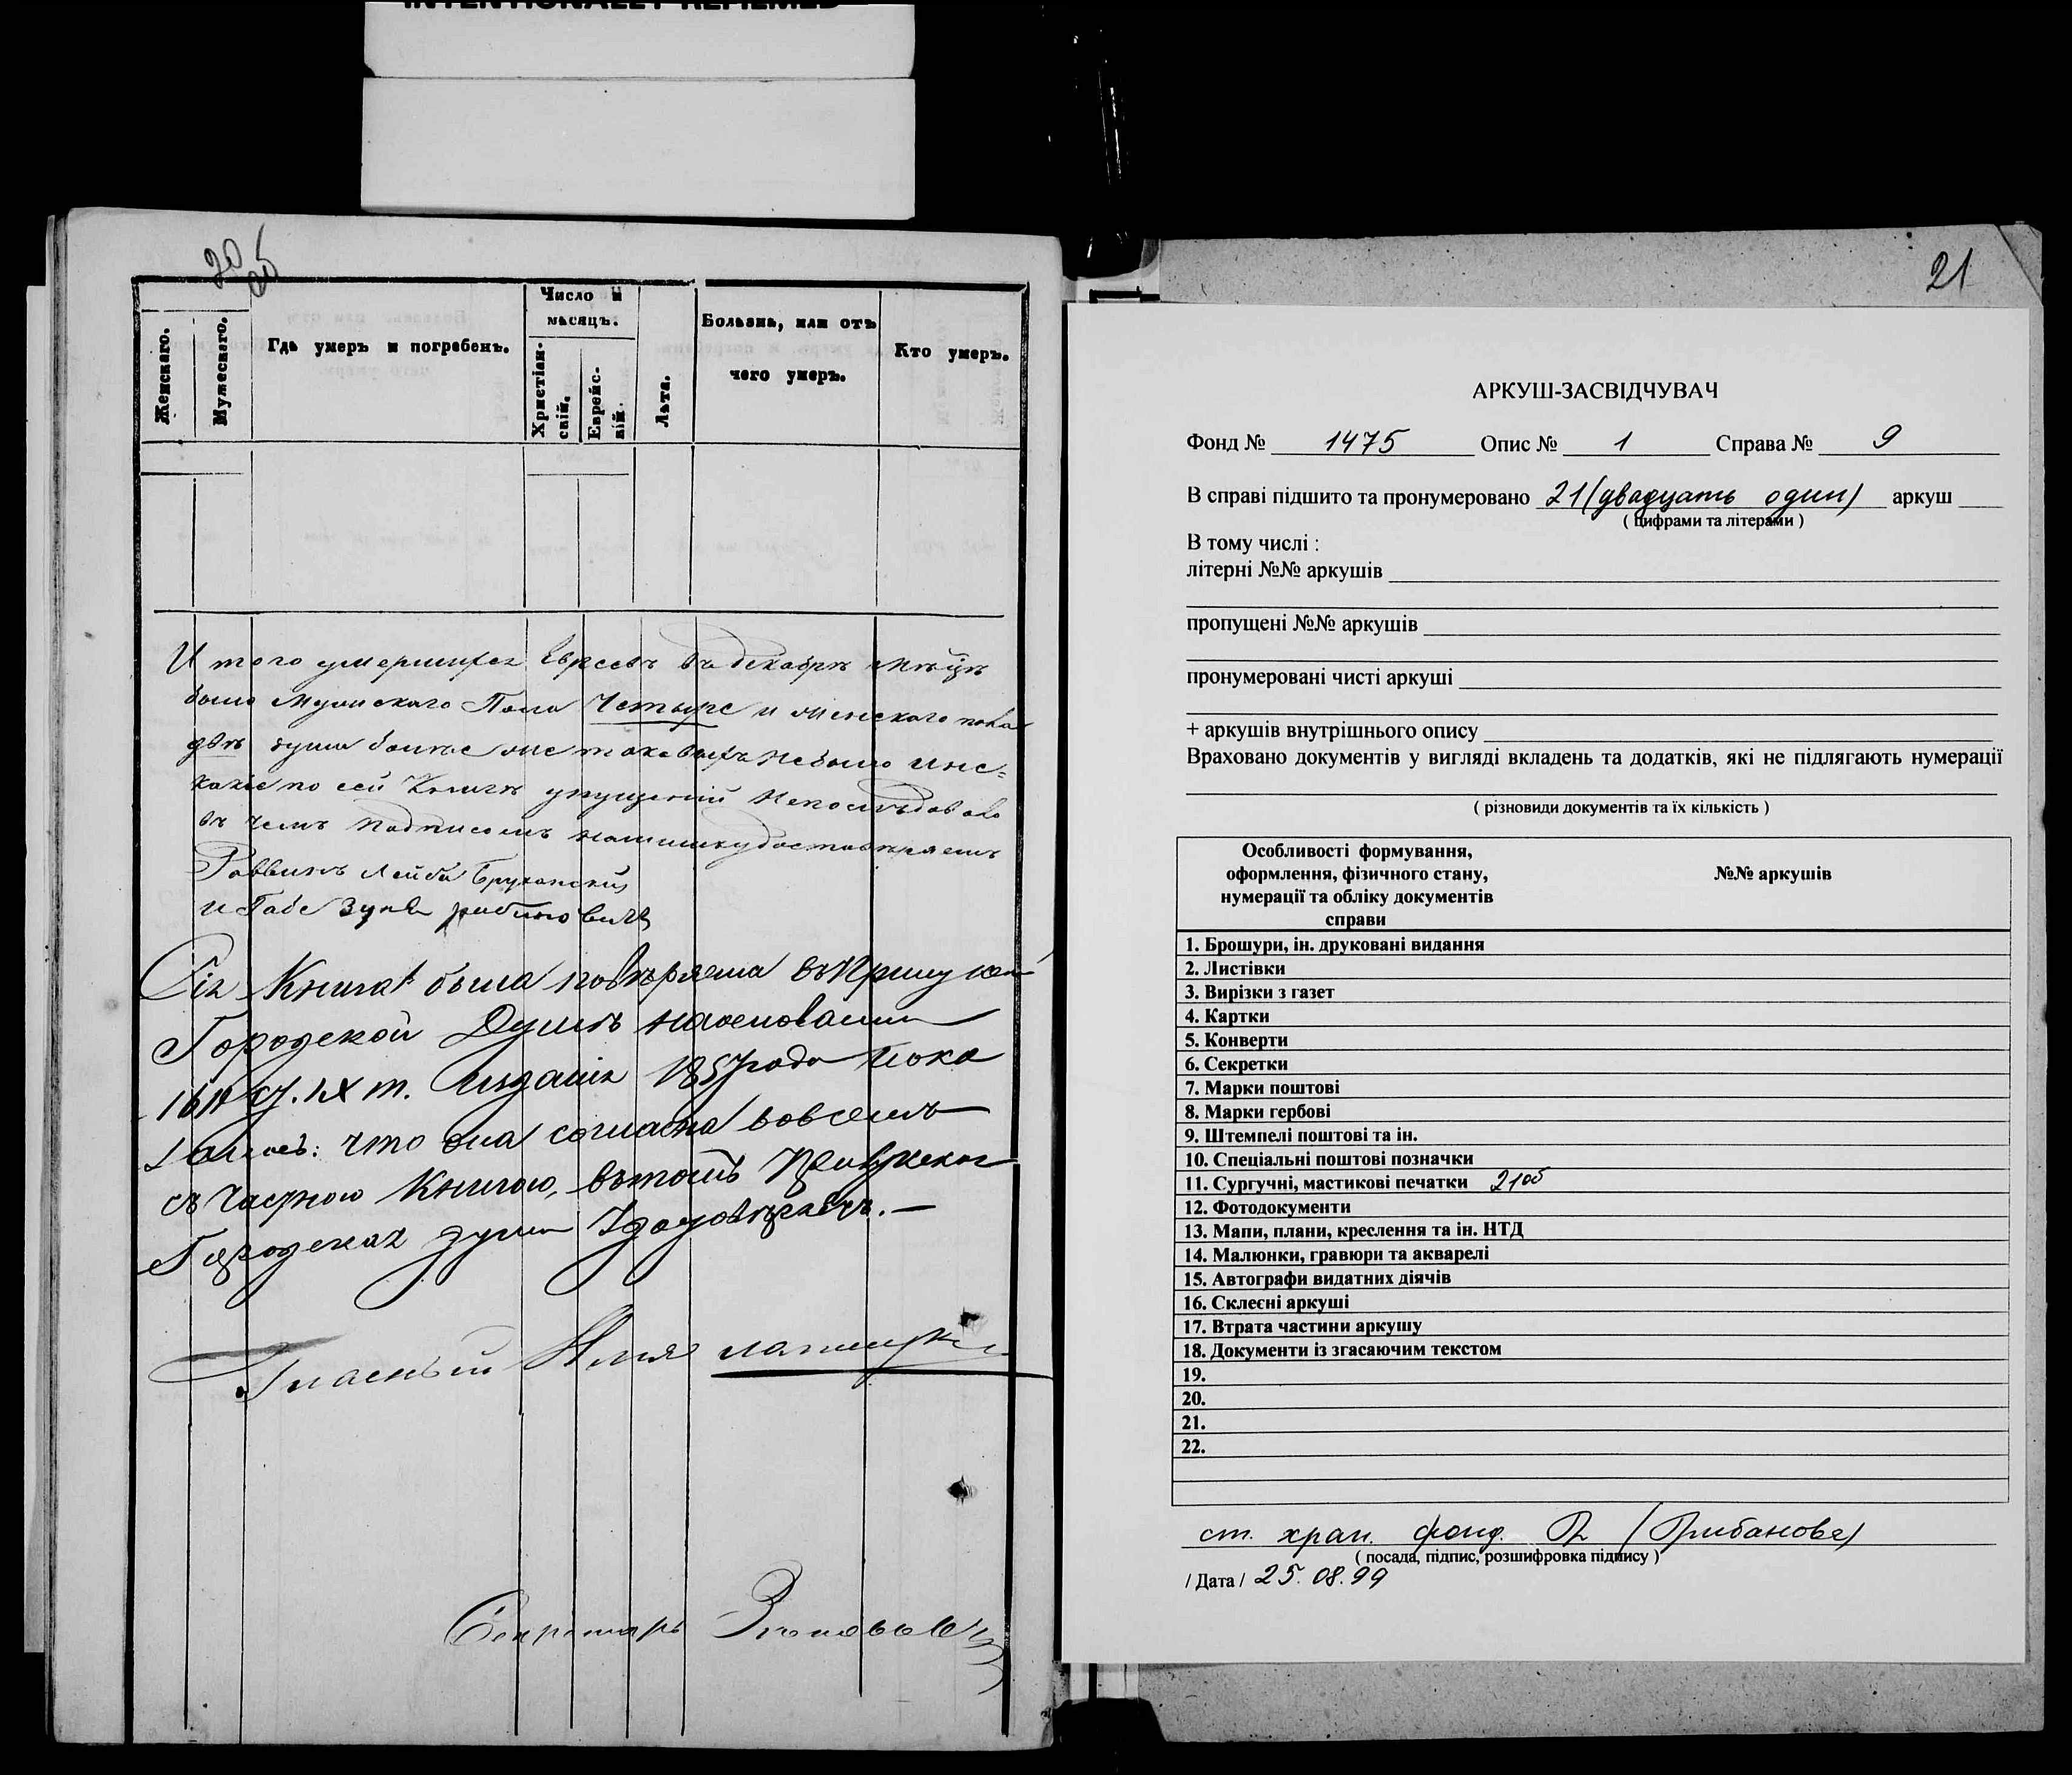 INTENTIONALLY REFILMED
20 об
Женскаго.
Мужескаго.
Гдѣ умеръ и погребенъ.
Число и мѣсяцъ.
Христіанскій.
Еврейскій.
Лѣта.
Болѣзнь, или отъ чего умеръ.
Кто умеръ.
Итого умершихъ Евреевъ въ декабрѣ мѣсцѣ
было Мужскаго Пола Четыре и женскаго пола
двѣ души болѣе же таковыхъ небыло и ни=
какіе по сей Книгѣ упущеній Непослѣдовало
въ чемъ Подписомъ нашимъ удостовѣряемъ
Раввинъ Лейба
и Габе рабиновичъ
Сія Книга была повѣряема въ
Городской Думѣ на основаніи
ст. IX т. изданія 1857 года и ока
залось: что она согласна во всемъ
съ Частною Книгою, въ томъ
Городская дума Удостовѣряетъ. —
Гласный Илія
Секретарь
21
АРКУШ-ЗАСВІДЧУВАЧ
Фонд № 1475 Опис № 1 Справа № 9
В справі підшито та пронумеровано 21 (двадцать один) аркуш
( цифрами та літерами )
В тому числі :
літерні №№ аркушів
пропущені №№ аркушів
пронумеровані чисті аркуші
+ аркушів внутрішнього опису
Враховано документів у вигляді вкладень та додатків, які не підлягають нумерації
( різновиди документів та їх кількість )
Особливості формування,
оформлення, фізичного стану,
нумерації та обліку документів
справи
№№ аркушів
1. Брошури, ін. друковані видання
2. Листівки
3. Вирізки з газет
4. Картки
5. Конверти
6. Секретки
7. Марки поштові
8. Марки гербові
9. Штемпелі поштові та ін.
10. Спеціальні поштові позначки
11. Сургучні, мастикові печатки 21об
12. Фотодокументи
13. Мапи, плани, креслення та ін. НТД
14. Малюнки, гравюри та акварелі
15. Автографи видатних діячів
16. Склеєні аркуші
17. Втрата частини аркушу
18. Документи із згасаючим текстом
19.
20.
21.
22.
ст. хран. фонд. (Грибанова)
( посада, підпис, розшифровка підпису )
/ Дата / 25. 08. 99